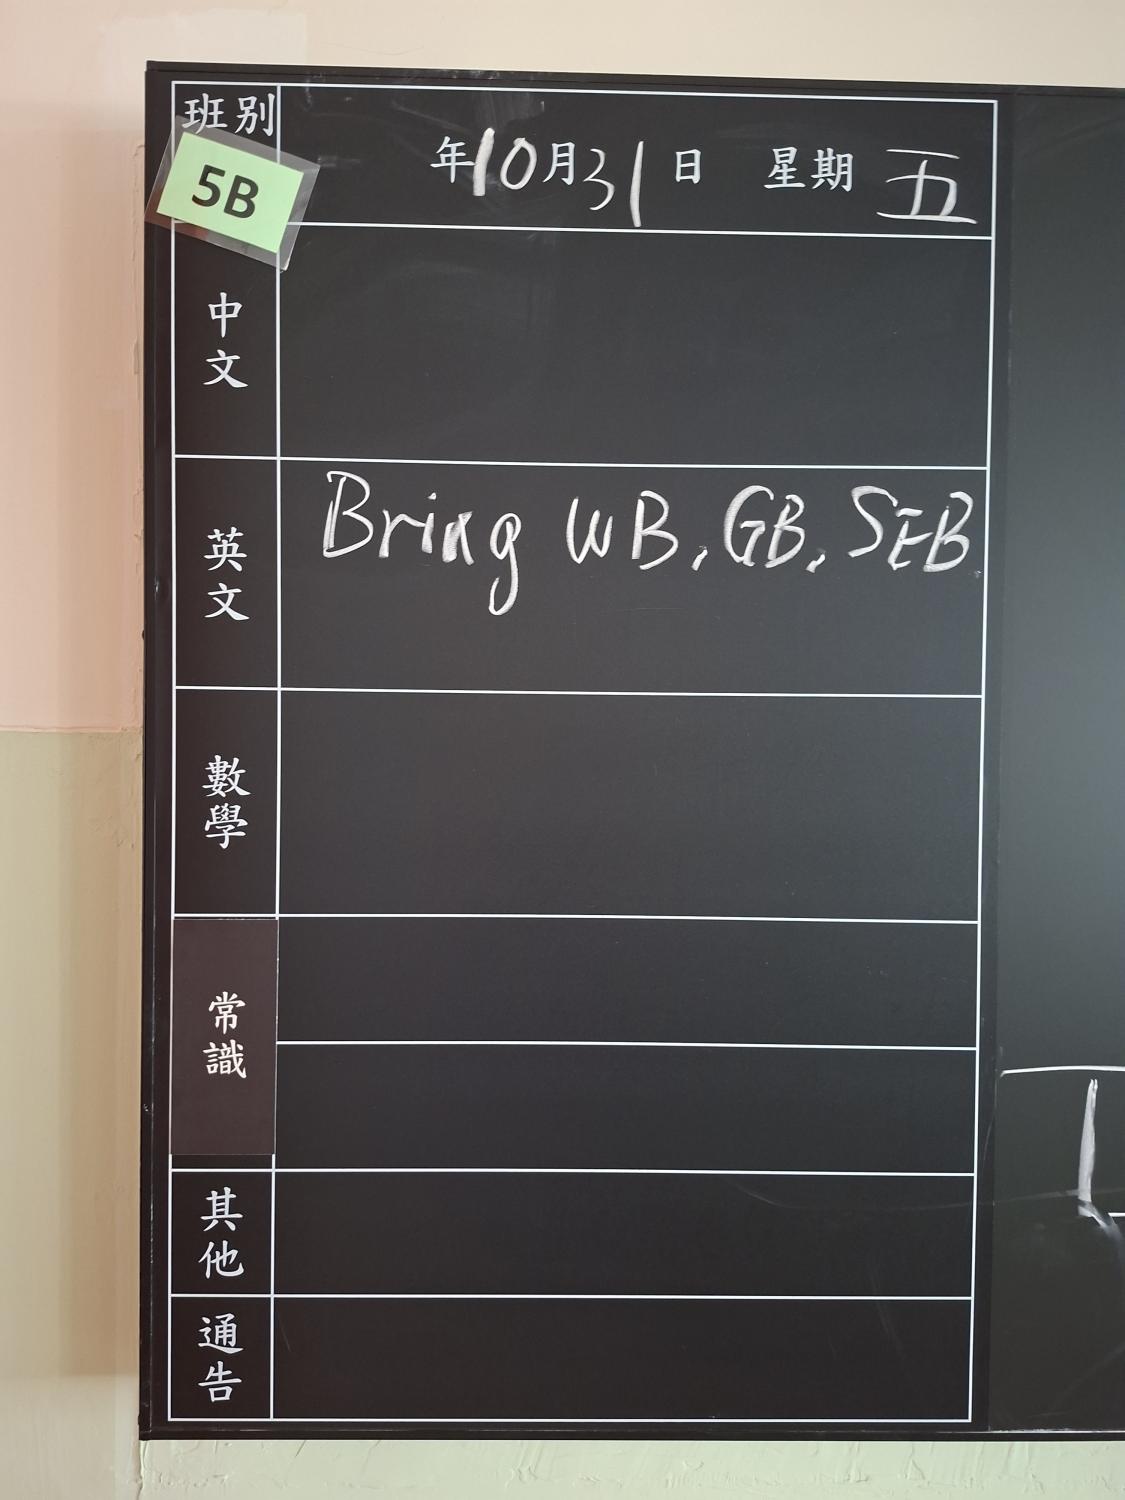 班别
5B
年10月31日 星期五
中文
英文
Bring WB, GB, SEB
數學
常識
其他
通告